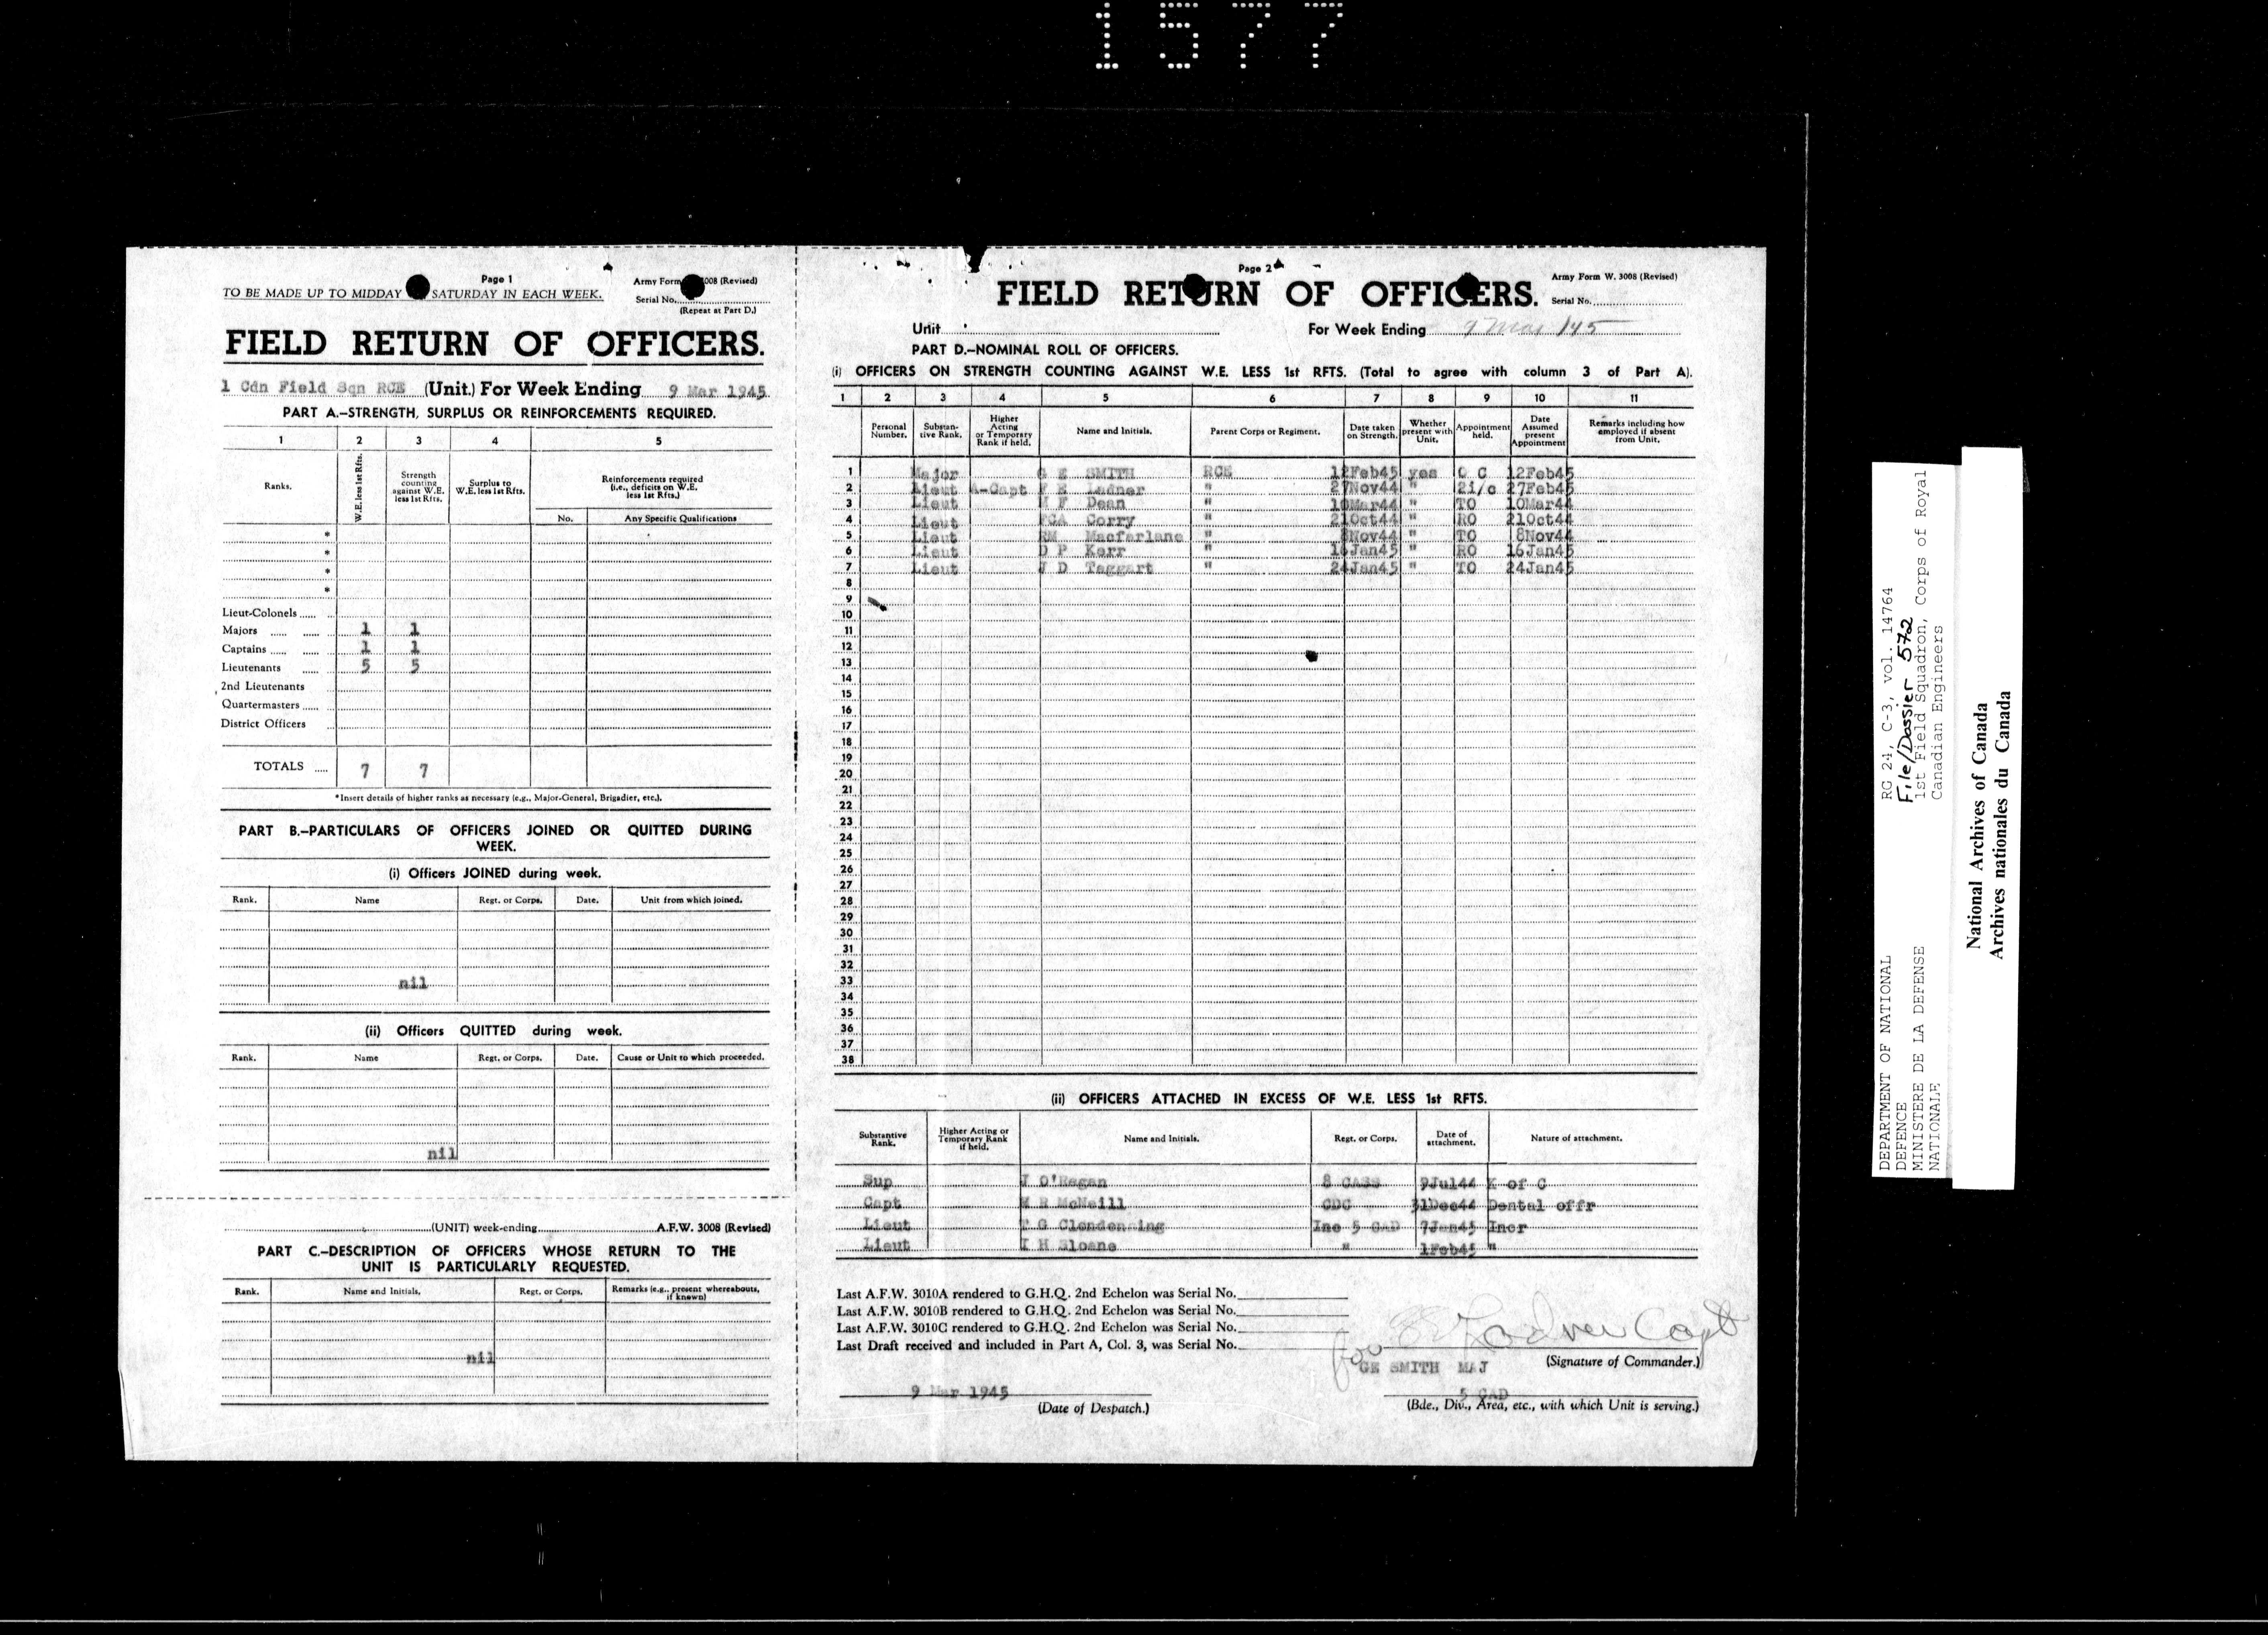 1577
Page 1
TO BE MADE UP TO MIDDAY SATURDAY IN EACH WEEK.
Army Form 3008 (Revised)
Serial No.
(Repeat at Part D.)
FIELD RETURN OF OFFICERS.
1 Cdn Field Sqn RCE (Unit.) For Week Ending 9 Mar 1945
PART A.-STRENGTH, SURPLUS OR REINFORCEMENTS REQUIRED.
1 2 3 4 5
Ranks. W.E. less 1st Rfts. Strength counting against W.E. less 1st Rfts. Surplus to W.E. less 1st Rfts. Reinforcements required (i.e., deficits on W.E. less 1st Rfts.)
No. Any Specific Qualifications
*
*
*
*
Lieut-Colonels
Majors 1 1
Captains 1 1
Lieutenants 5 5
2nd Lieutenants
Quartermasters
District Officers
TOTALS 7 7
*Insert details of higher ranks as necessary (e.g., Major-General, Brigadier, etc.).
PART B.-PARTICULARS OF OFFICERS JOINED OR QUITTED DURING
WEEK.
(i) Officers JOINED during week.
Rank. Name Regt. or Corps. Date. Unit from which joined.
nil
(ii) Officers QUITTED during week.
Rank. Name Regt. or Corps. Date. Cause or Unit to which proceeded.
nil
(UNIT) week-ending A.F.W. 3008 (Revised)
PART C.-DESCRIPTION OF OFFICERS WHOSE RETURN TO THE
UNIT IS PARTICULARLY REQUESTED.
Rank. Name and Initials. Regt. or Corps. Remarks (e.g., present whereabouts, if known)
nil
Page 2
FIELD RETURN OF OFFICERS.
Army Form W. 3008 (Revised)
Serial No.
Unit
For Week Ending 9 Mar /45
PART D.-NOMINAL ROLL OF OFFICERS.
(i) OFFICERS ON STRENGTH COUNTING AGAINST W.E. LESS 1st RFTS. (Total to agree with column 3 of Part A).
1 2 3 4 5 6 7 8 9 10 11
Personal Number. Substan-tive Rank. Higher Acting or Temporary Rank if held. Name and Initials. Parent Corps or Regiment. Date taken on Strength. Whether present with Unit. Appointment held. Date Assumed present Appointment Remarks including how employed if absent from Unit.
1 Major G E SMITH RCE 12Feb45 yes O C 12Feb45
2 Lieut A-Capt Ladner " 27Nov44 " 2i/c 27Feb45
3 Lieut H F Dean " 10Mar44 " TO 10Mar44
4 Lieut Corry " 21Oct44 " RO 21Oct44
5 Lieut RM Macfarlane " 8Nov44 " TO 8Nov44
6 Lieut D P Kerr " 16Jan45 " RO 16Jan45
7 Lieut J D Taggart " 24Jan45 " TO 24Jan45
8
9
10
11
12
13
14
15
16
17
18
19
20
21
22
23
24
25
26
27
28
29
30
31
32
33
34
35
36
37
38
(ii) OFFICERS ATTACHED IN EXCESS OF W.E. LESS 1st RFTS.
Substantive Rank. Higher Acting or Temporary Rank if held. Name and Initials. Regt. or Corps. Date of attachment. Nature of attachment.
Sup J O'Regan 8 CASS 9Jul44 K of C
Capt R McNeill CDC 31Dec44 Dental offr
Lieut T G Clendenning Inc 5 CAD 7Jan45 Incr
Lieut I H Sloane " 1Feb45 "
Last A.F.W. 3010A rendered to G.H.Q. 2nd Echelon was Serial No.
Last A.F.W. 3010B rendered to G.H.Q. 2nd Echelon was Serial No.
Last A.F.W. 3010C rendered to G.H.Q. 2nd Echelon was Serial No.
Last Draft received and included in Part A, Col. 3, was Serial No.
for Ladner Capt
GE SMITH MAJ (Signature of Commander.)
9 Mar 1945
(Date of Despatch.)
5 CAD
(Bde., Div., Area, etc., with which Unit is serving.)
DEPARTMENT OF NATIONAL
DEFENCE
MINISTERE DE LA DEFENSE
NATIONALE
RG 24, C-3, vol. 14764
File/Dossier 572
1st Field Squadron, Corps of Royal
Canadian Engineers
National Archives of Canada
Archives nationales du Canada